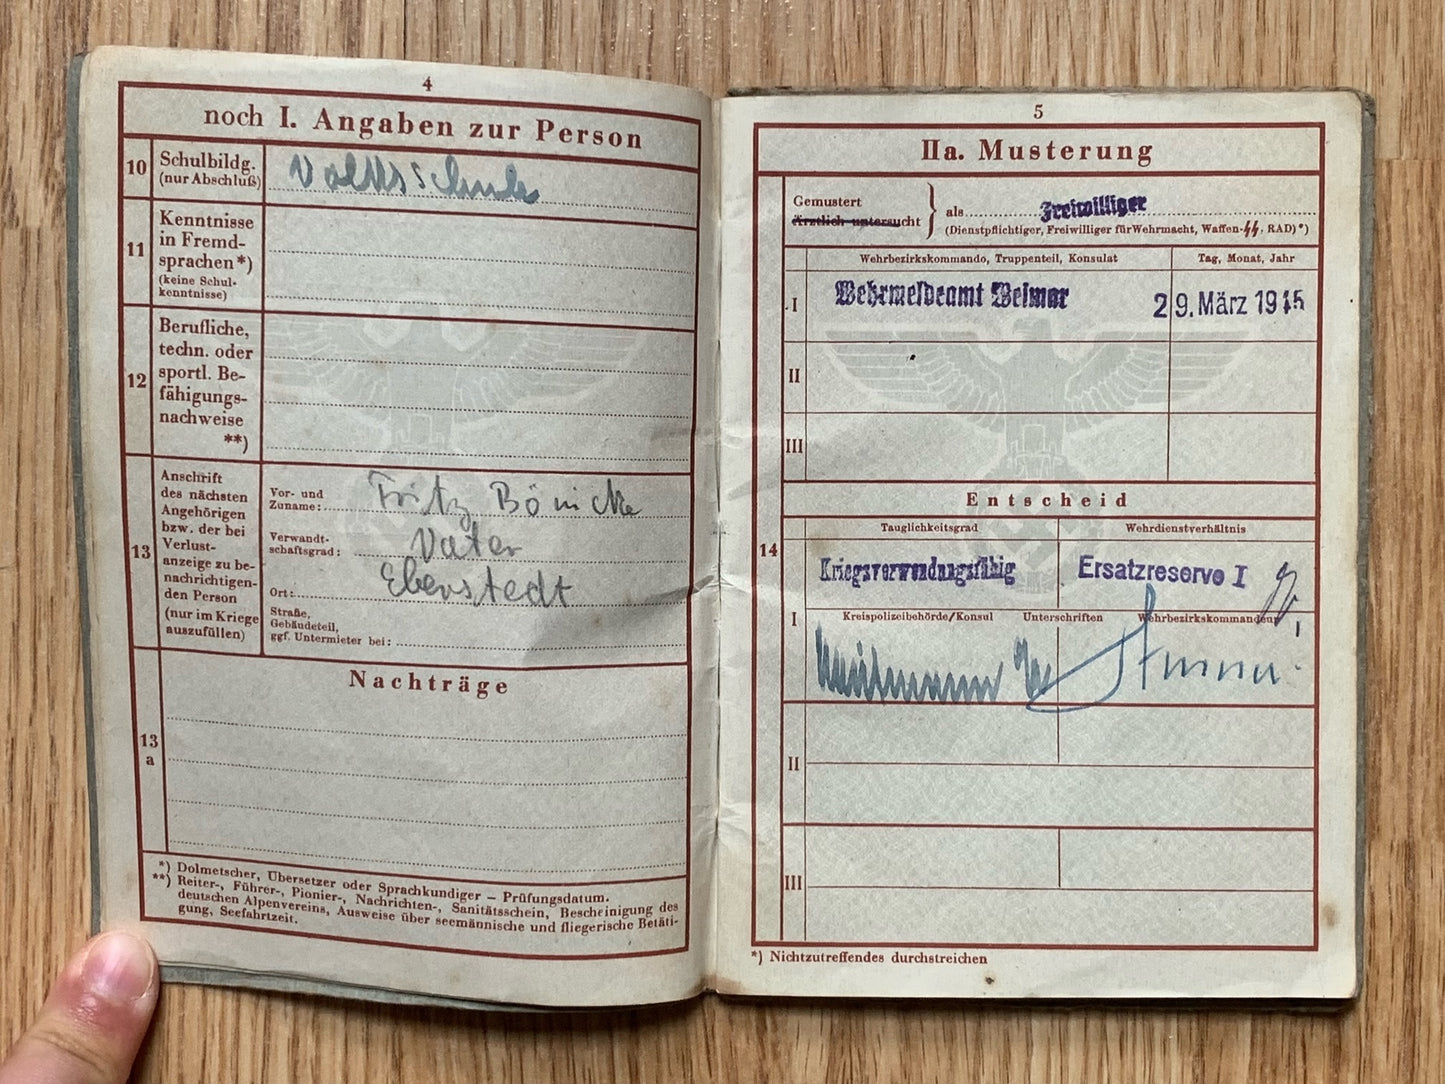 4
noch I. Angaben zur Person
10
Schulbildg.
(nur Abschluß)
Volksschule
11
Kenntnisse
in Fremd-
sprachen*)
(keine Schul-
kenntnisse)
12
Berufliche,
techn. oder
sportl. Be-
fähigungs-
nachweise
**)
13
Anschrift
des nächsten
Angehörigen
bzw. der bei
Verlust-
anzeige zu be-
nachrichtigen-
den Person
(nur im Kriege
auszufüllen)
Vor- und
Zuname:
Fritz Bönicke
Verwandt-
schaftsgrad:
Vater
Ort:
Eberstedt
Straße,
Gebäudeteil,
ggf. Untermieter bei:
Nachträge
13
a
*) Dolmetscher, Übersetzer oder Sprachkundiger – Prüfungsdatum.
**) Reiter-, Führer-, Pionier-, Nachrichten-, Sanitätsschein, Bescheinigung des
deutschen Alpenvereins, Ausweise über seemännische und fliegerische Betäti-
gung, Seefahrtzeit.
5
IIa. Musterung
Gemustert
Ärztlich untersucht
als Freiwilliger
(Dienstpflichtiger, Freiwilliger für Wehrmacht, Waffen-ᛋᛋ, RAD)*)
Wehrbezirkskommando, Truppenteil, Konsulat Tag, Monat, Jahr
I Wehrmeldeamt Weimar 29. März 1945
II
III
14
Entscheid
Tauglichkeitsgrad Wehrdienstverhältnis
Kriegsverwendungsfähig Ersatzreserve I
I
Kreispolizeibehörde/Konsul Unterschriften Wehrbezirkskommandeur
II
III
*) Nichtzutreffendes durchstreichen